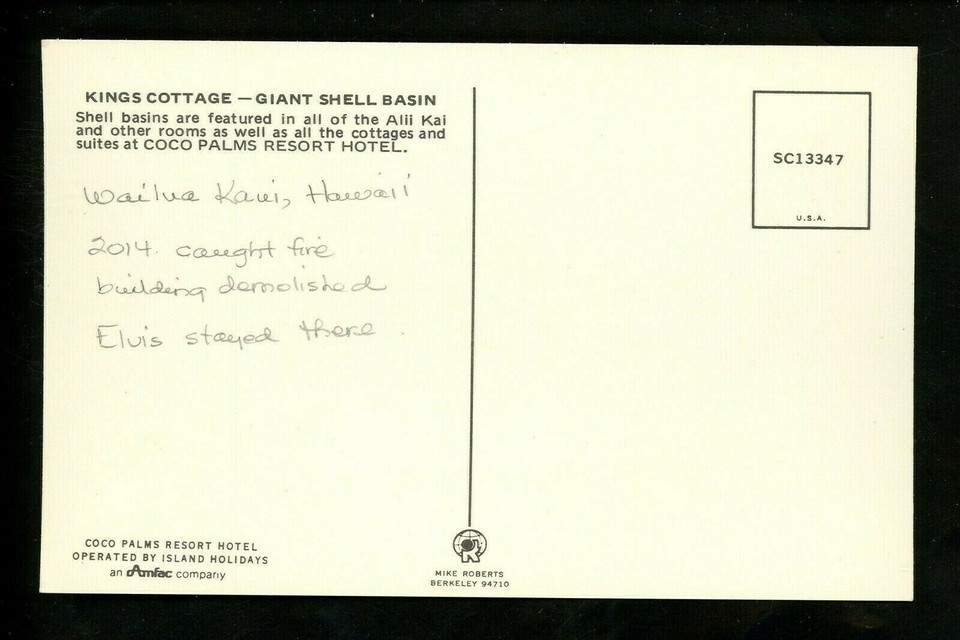 KINGS COTTAGE — GIANT SHELL BASIN
Shell basins are featured in all of the Alii Kai
and other rooms as well as all the cottages and
suites at COCO PALMS RESORT HOTEL.
Wailua Kaui, Hawaii
2014. caught fire
building demolished
Elvis stayed there.
SC13347
U.S.A.
COCO PALMS RESORT HOTEL
OPERATED BY ISLAND HOLIDAYS
an Amfac company
MIKE ROBERTS
BERKELEY 94710